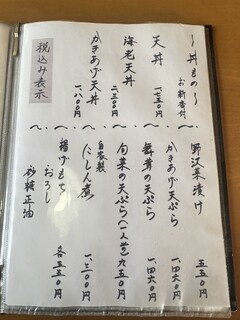 〜丼もの〜
お新香付
天丼
一.七五〇円
海老天丼
二.三五〇円
かきあげ天丼
一.八〇〇円
税込み表示
〜・〜・〜・〜・〜・〜
野沢菜漬け
五五〇円
かきあげ天ぷら
一.四六〇円
舞茸の天ぷら
一.四六〇円
旬菜の天ぷら(一人前)
九五〇円
自家製
にしん煮
一.三〇〇円
揚げもち
おろし
砂糖正油
各五五〇円